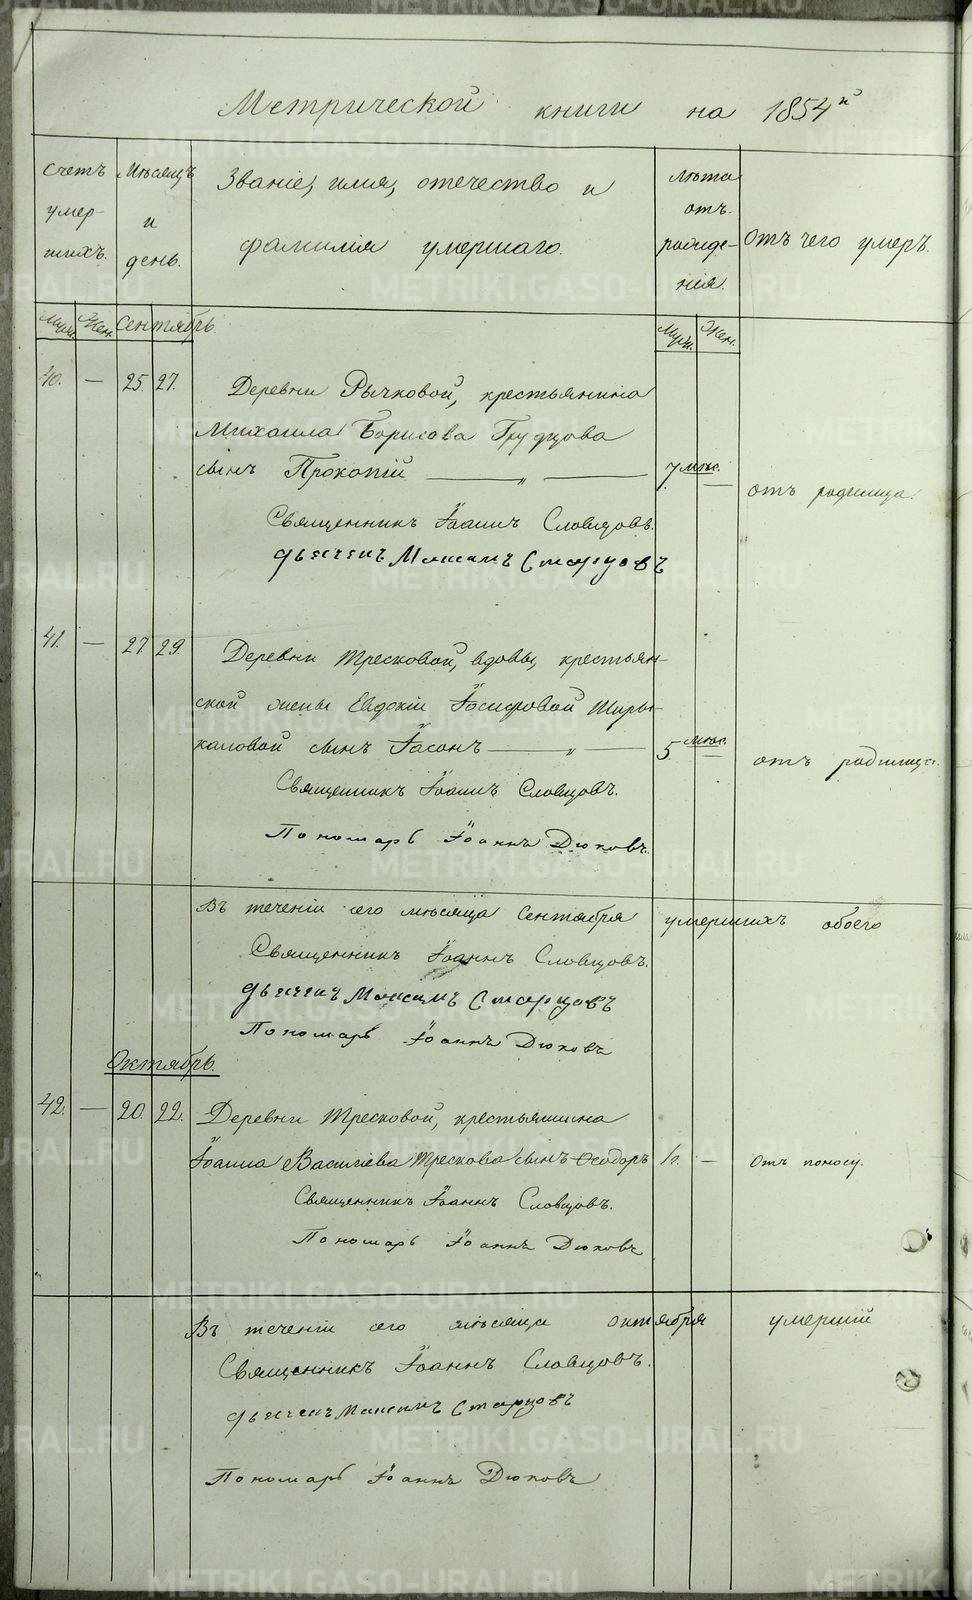 Метрической книги на 1854й
Счетъ умер-шихъ.
Мѣсяцъ и день.
Званіе, имя, отечество и фамилія умершаго.
Лѣта отъ рожде-нія.
Отъ чего умеръ.
Муж. Жен. Сентябрь. Муж. Жен.
40. — 25. 27. Деревни Рычковой, крестьянина
Михаила Борисова Грудцова
сынъ Прокопій — „ — 7 мѣс. — отъ родимца.
Священникъ Іоаннъ Словцовъ.
Дьячекъ Максимъ Старцовъ
41. — 27. 29. Деревни Тресковой, вдовы, крестьян-
ской жены Евдокіи Іосифовой Шыры-
каловой сынъ Іасонъ — „ — 5 мѣс. — отъ родимца.
Священникъ Іоаннъ Словцовъ.
Пономарь Іоаннъ Дюковъ.
Въ теченіи сего мѣсяца Сентября умершихъ обоего
Священникъ Іоаннъ Словцовъ.
Дьячекъ Максимъ Старцовъ
Пономарь Іоаннъ Дюковъ
Октябрь.
42. — 20. 22. Деревни Тресковой, крестьянина
Іоанна Василіева Трескова сынъ Ѳеодоръ 1 г. — отъ поносу.
Священникъ Іоаннъ Словцовъ.
Пономарь Іоаннъ Дюковъ
Въ теченіи сего мѣсяца октября умершій
Священникъ Іоаннъ Словцовъ.
Дьячекъ Максимъ Старцовъ
Пономарь Іоаннъ Дюковъ
METRIKI.GASO-URAL.RU